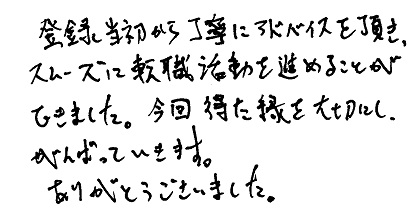 登録当初から丁寧にアドバイスを頂き、
スムーズに転職活動を進めることが
できました。今回得た縁を大切にし、
がんばっていきます。
ありがとうございました。